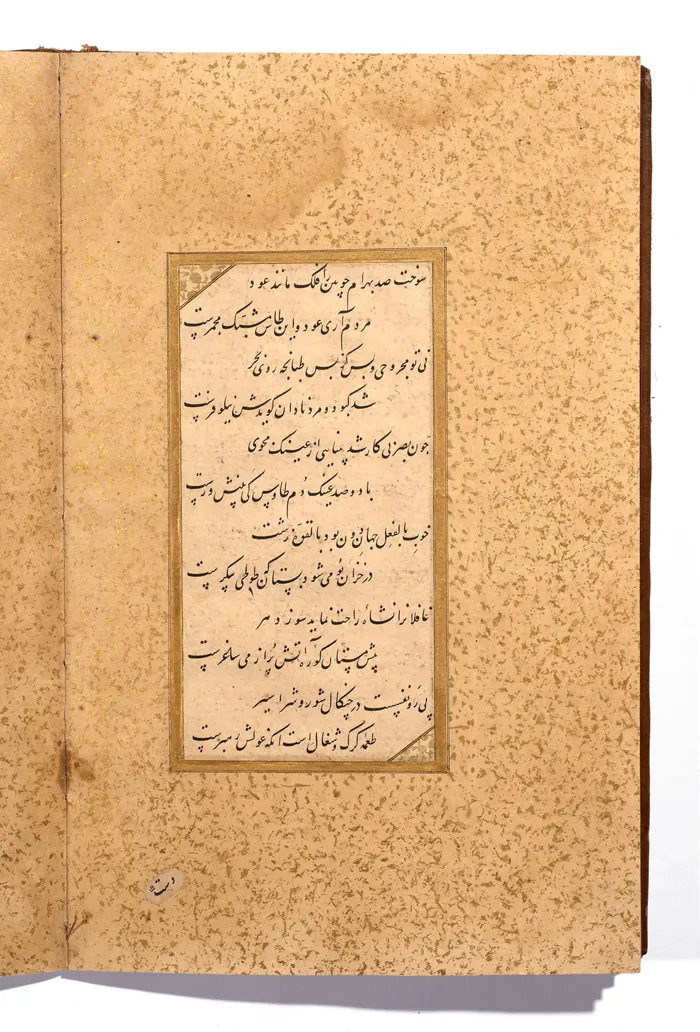 سوخت صد بهرام چوبین را فلک مانند عود
مردم آری عود و این طاس مشبک مجمرست
نی تو مجروحی و بس کز بس طبانچه روی بحر
شد کبود و مرد نادان کویدش نیلوفرست
چون بصر بی کار شد بینایی از عینک مجوی
با دو صد عینک دم طاوس کی بینش ورست
خوب بالفعل جهان دون بود بالقوه زشت
در خزان بو می شود بستان کش طوطی پیکرست
غافلانرا نشاه راحت نماید سوز دهر
پیش مستان کوزه آتش پر از می ساغرست
پی رو نفسست در چنکال شور و شر اسیر
طعمه کرک و شغال است انکه غولش رهبرست
دست